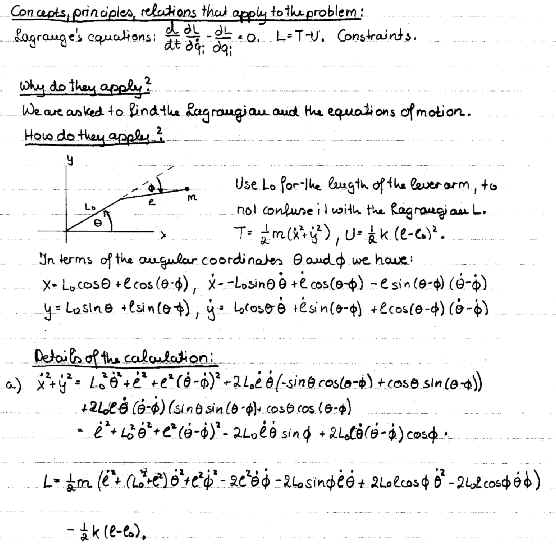 Concepts, principles, relations that apply to the problem:
Lagrange's equations: d/dt ∂L/∂q̇i - ∂L/∂qi = 0. L=T-U. Constraints.
Why do they apply?
We are asked to find the Lagrangian and the equations of motion.
How do they apply?
y
φ
l
m
L₀
θ
x
Use L₀ for the length of the lever arm, to
not confuse it with the Lagrangian L.
T = ½m(ẋ²+ẏ²), U = ½k(l-l₀)².
In terms of the angular coordinates θ and φ we have:
x = L₀cosθ + l cos(θ-φ), ẋ = -L₀sinθ θ̇ + l̇ cos(θ-φ) - l sin(θ-φ)(θ̇-φ̇)
y = L₀sinθ + l sin(θ-φ), ẏ = L₀cosθ θ̇ + l̇ sin(θ-φ) + l cos(θ-φ)(θ̇-φ̇)
Details of the calculation:
a) ẋ²+ẏ² = L₀²θ̇² + l̇² + l²(θ̇-φ̇)² + 2L₀l̇θ̇(-sinθcos(θ-φ) + cosθ sin(θ-φ))
+2L₀lθ̇(θ̇-φ̇)(sinθ sin(θ-φ) + cosθ cos(θ-φ)
= l̇² + L₀²θ̇² + l²(θ̇-φ̇)² - 2L₀l̇θ̇ sinφ + 2L₀lθ̇(θ̇-φ̇)cosφ.
L = ½m(l̇² + (L₀²+l²)θ̇² + l²φ̇² - 2l²θ̇φ̇ - 2L₀sinφ l̇θ̇ + 2L₀l cosφ θ̇² - 2L₀l cosφ θ̇φ̇)
- ½k(l-l₀)².